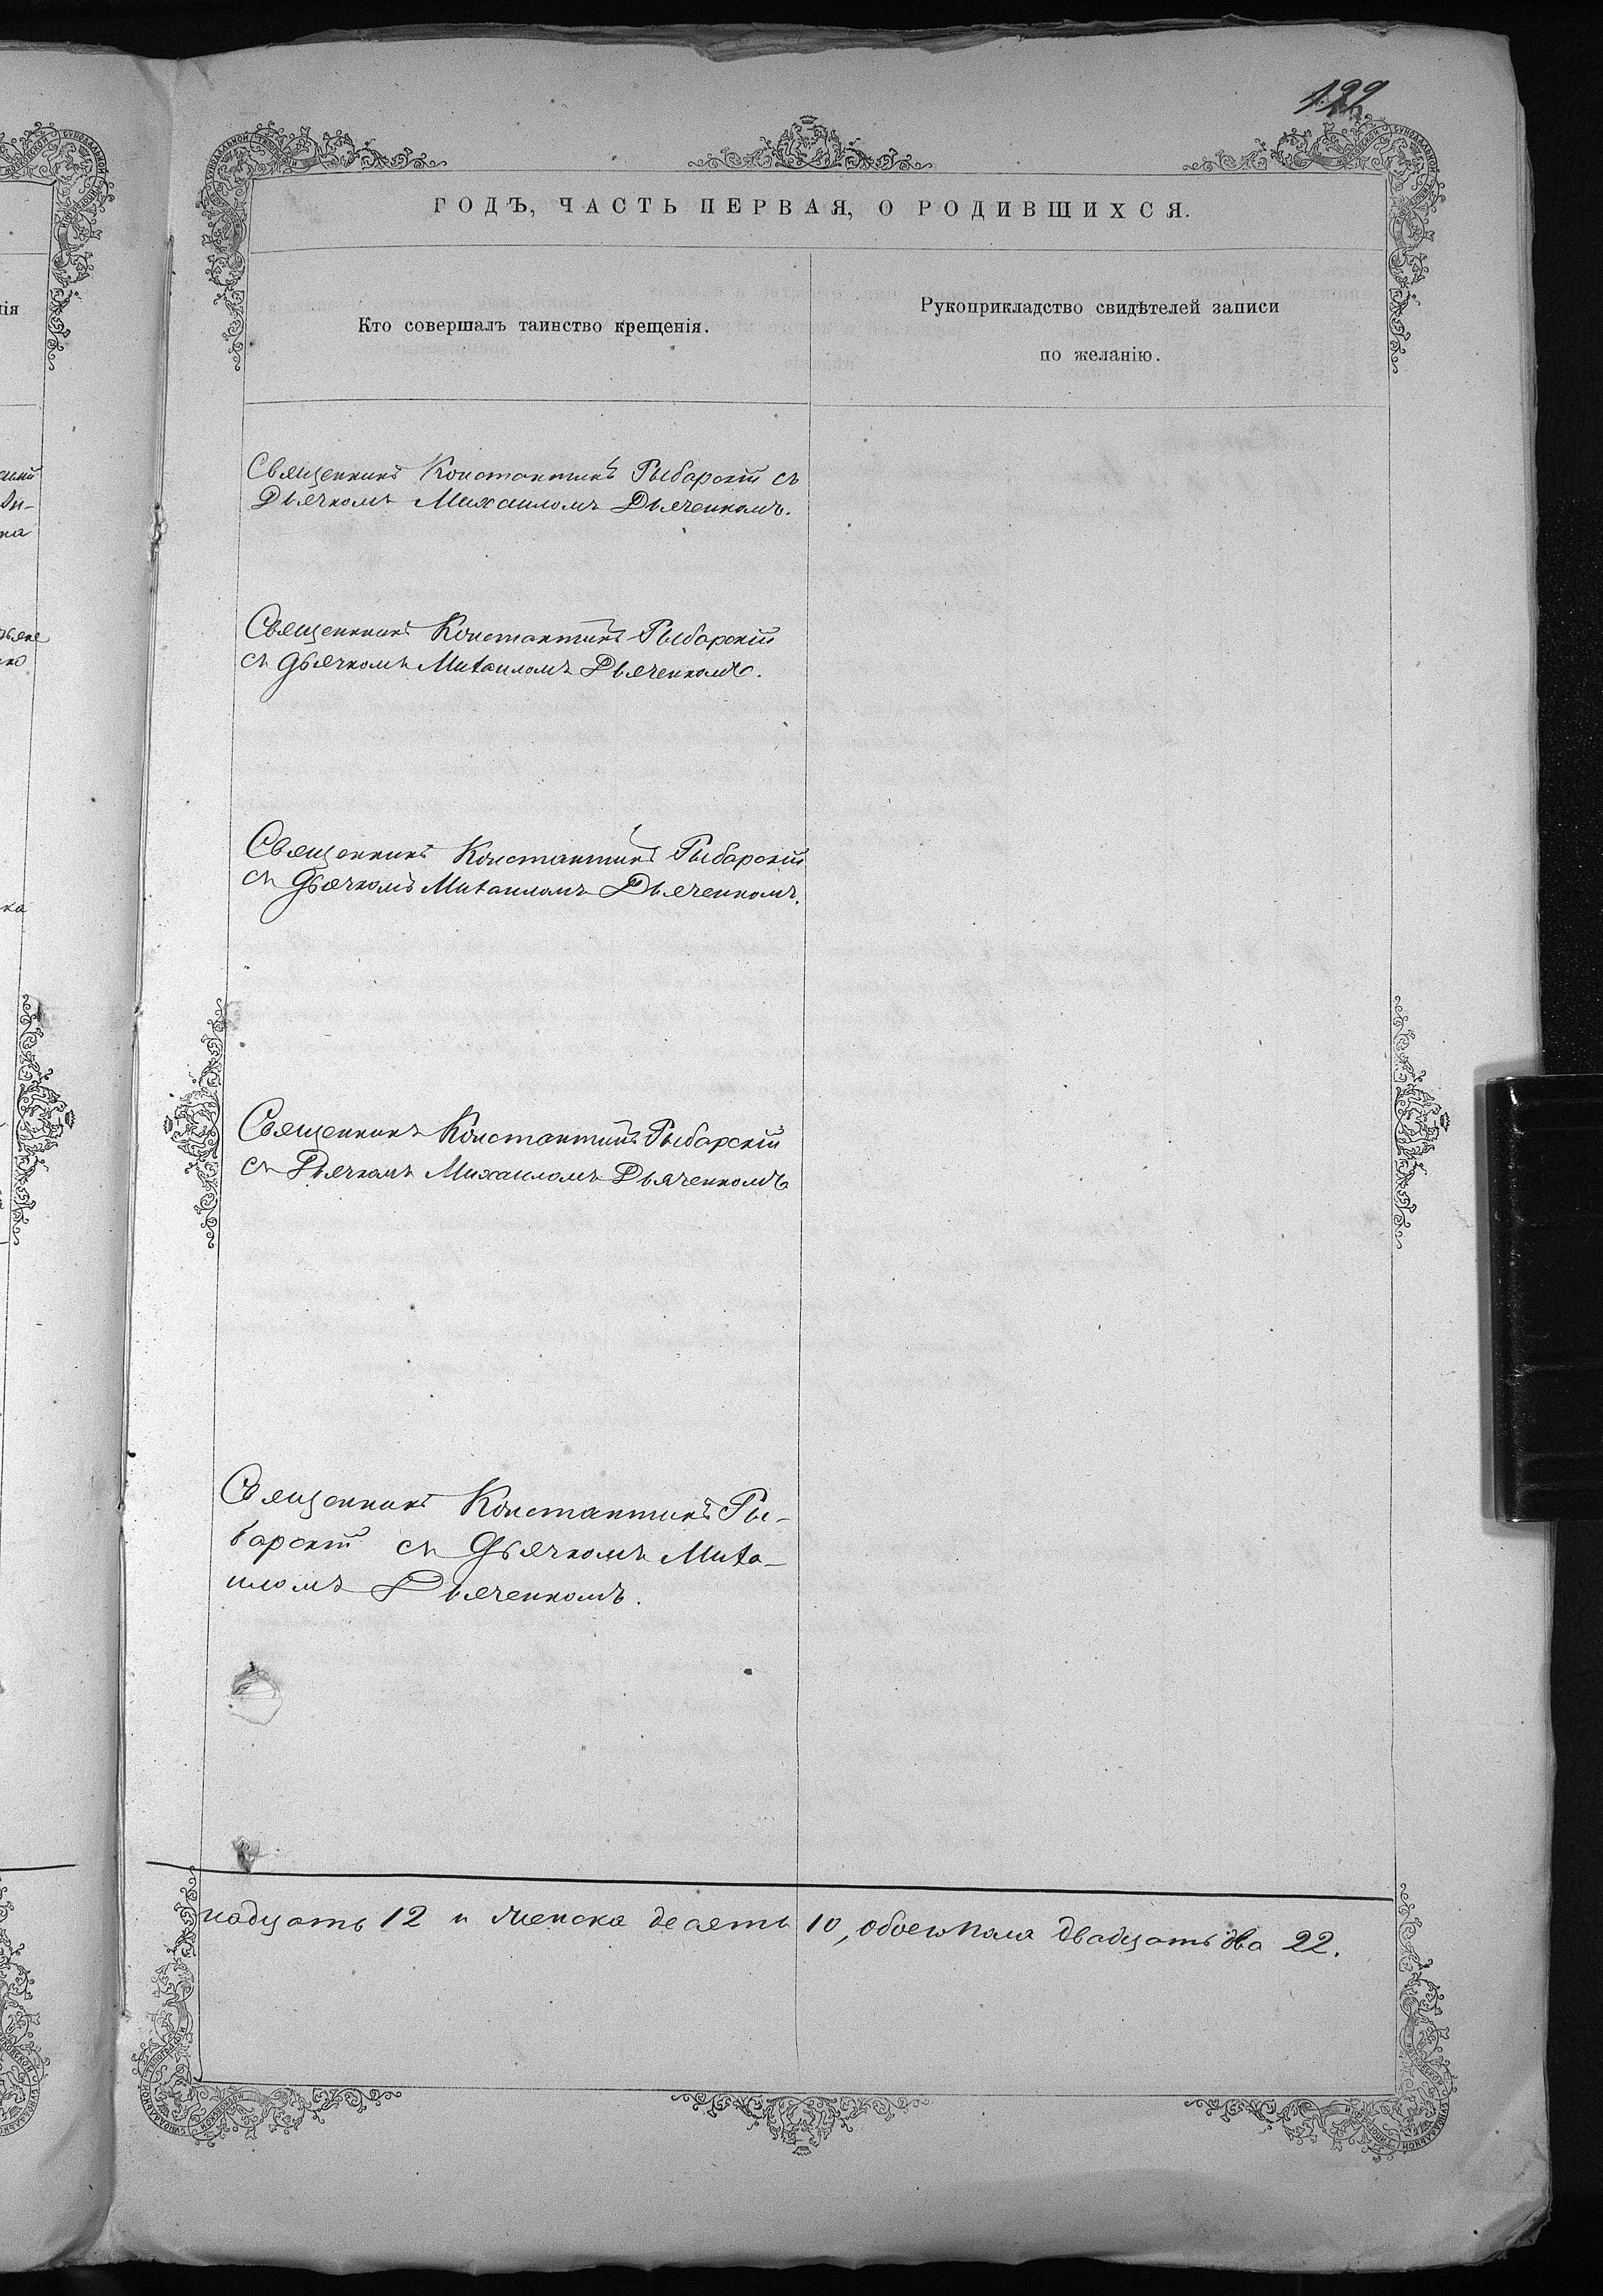 ГОДЪ, ЧАСТЬ ПЕРВАЯ, О РОДИВШИХСЯ.
Кто совершалъ таинство крещенія.
Рукоприкладство свидѣтелей записи
по желанію.
Священникъ Константинъ Рыбарскій съ
Дьячкомъ Михаиломъ Дьяченкомъ.
Священникъ Константинъ Рыбарскій
съ Дьячкомъ Михаиломъ Дьяченкомъ.
Священникъ Константинъ Рыбарскій
съ Дьячкомъ Михаиломъ Дьяченкомъ.
Священникъ Константинъ Рыбарскій
съ Дьячкомъ Михаиломъ Дьяченкомъ
Священникъ Константинъ Ры-
барскій съ Дьячкомъ Миха-
иломъ Дьяченкомъ.
надцать 12 и женска десять 10, обоего пола двадцать два 22.